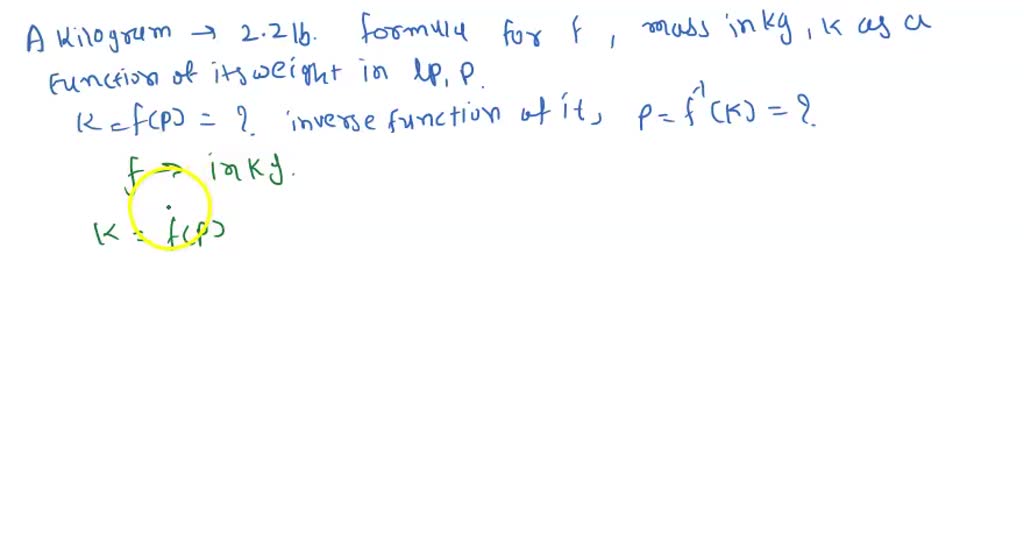 A Kilogram → 2.2 lb. formula for f, mass in kg, K as a
Function of its weight in lp, P.
K = f(P) = ? inverse function of it, P = f⁻¹(K) = ?
f → in Kg.
K = f(P)